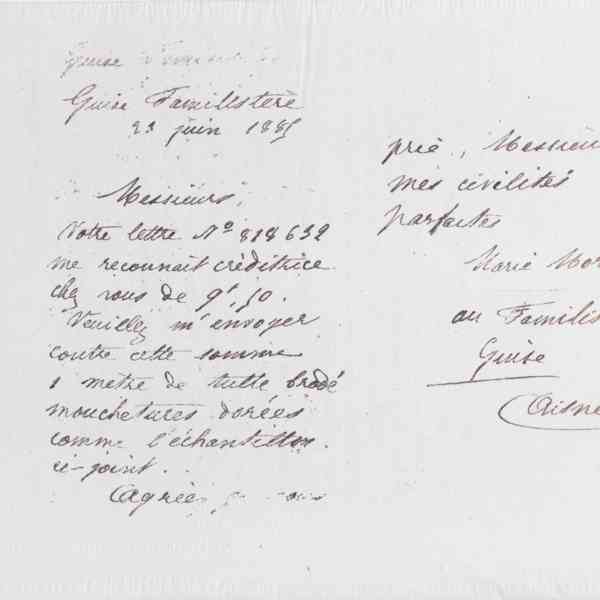 Guise
Guise Familistère
22 juin 1885
Messieurs,
Votre lettre Nº 818632
me reconnait créditrice
chez vous de 9f,50.
Veuillez m'envoyer
contre cette somme
1 mètre de tulle brodé
mouchetures dorées
comme l'échantillon
ci-joint.
Agréez
prie, Messieurs
mes civilités
parfaites
Marie Mor
au Familis
Guise
(Aisne